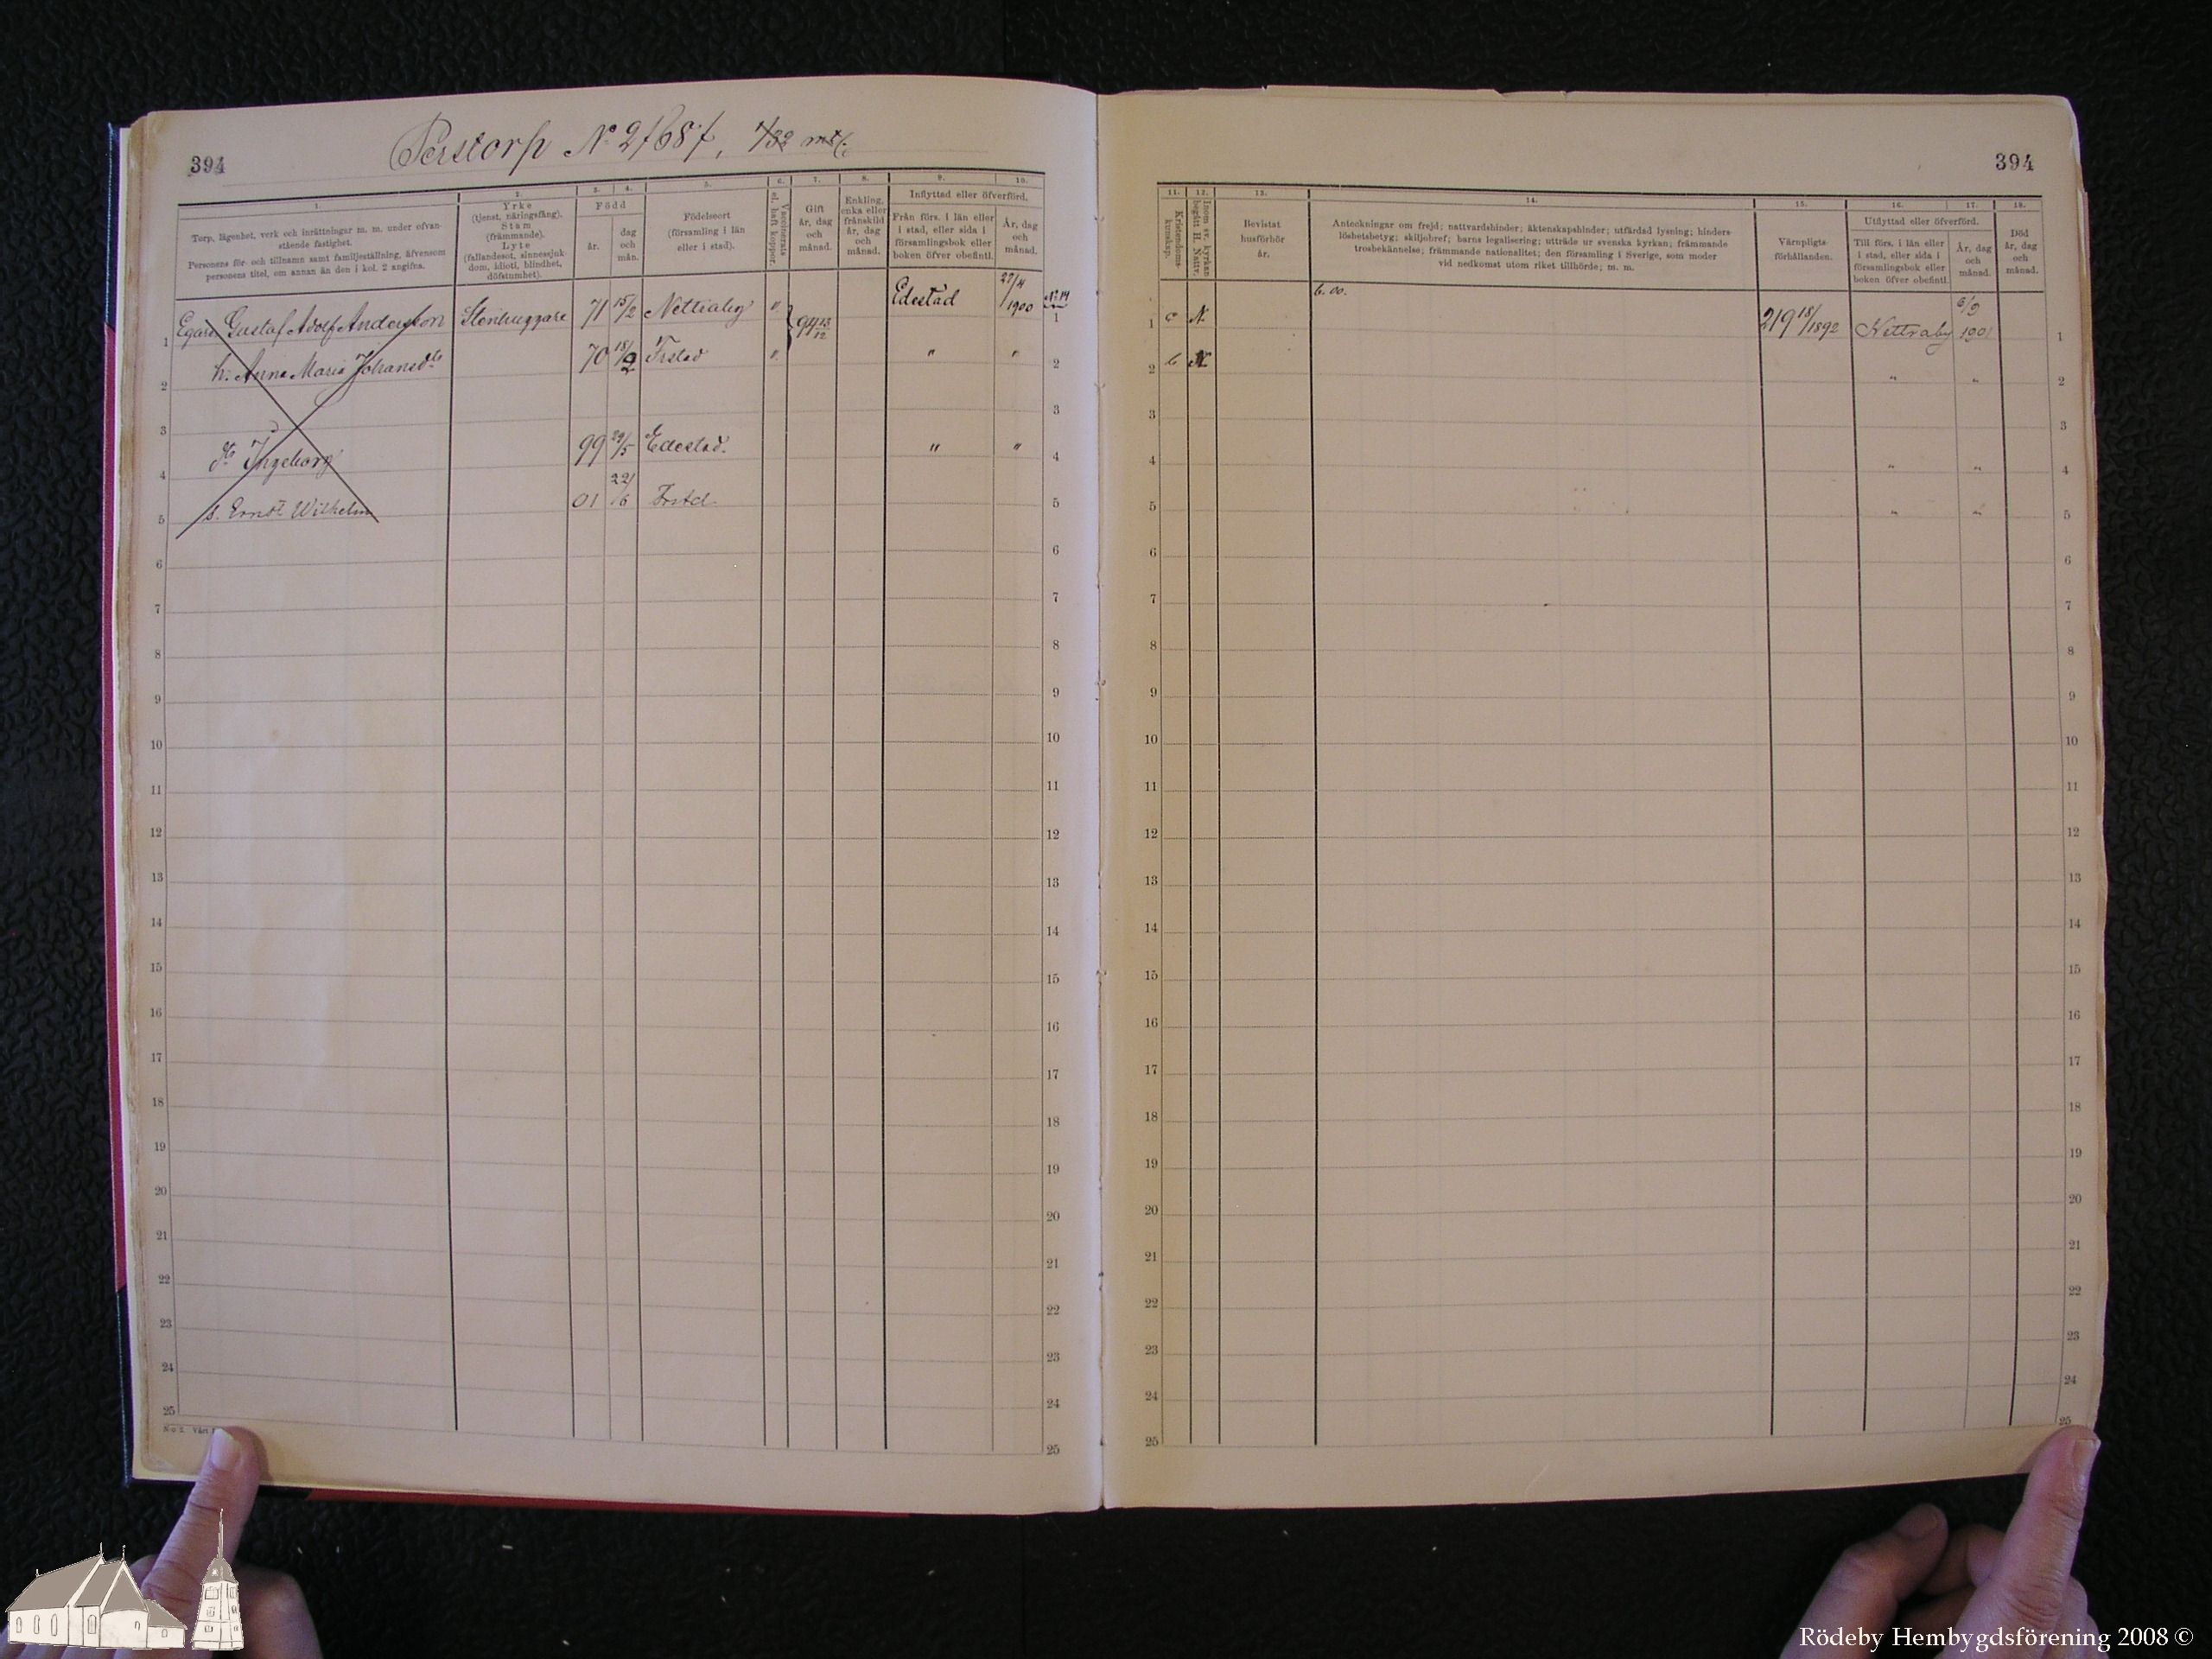 394
Perstorp No 2/68 f, 1/32 mtl.
394
1. 2. 3. 4. 5. 6. 7. 8. 9. 10.
Torp, lägenhet, verk och inrättningar m. m. under ofvan-
stående fastighet.
Personens för- och tillnamn samt familjeställning, äfvensom
personens titel, om annan än den i kol. 2 angifna.
Yrke
(tjenst, näringsfång).
Stam
(främmande).
Lyte
(fallandesot, sinnessjuk-
dom, idioti, blindhet,
döfstumhet).
Född
år.
dag
och
mån.
Födelseort
(församling i län
eller i stad).
Vaccinerats
el. haft koppor.
Gift
år, dag
och
månad.
Enkling,
enka eller
frånskild
år, dag
och
månad.
Inflyttad eller öfverförd.
Från förs. i län eller
i stad, eller sida i
församlingsbok eller
boken öfver obefintl.
År, dag
och
månad.
11. 12. 13. 14. 15. 16. 17. 18.
Kristendoms-
kunskap.
Inom sv. kyrkan
begått H. Nattv.
Bevistat
husförhör
år.
Anteckningar om frejd; nattvardshinder; äktenskapshinder; utfärdad lysning; hinders-
löshetsbetyg; skiljobref; barns legalisering; utträde ur svenska kyrkan; främmande
trosbekännelse; främmande nationalitet; den församling i Sverige, som moder
vid nedkomst utom riket tillhörde; m. m.
Värnpligts-
förhållanden.
Utflyttad eller öfverförd.
Till förs. i län eller
i stad, eller sida i
församlingsbok eller
boken öfver obefintl.
År, dag
och
månad.
Död
år, dag
och
månad.
1 Egare Gustaf Adolf Andersson Stenhuggare 71 15/2 Nettraby " 94 13/12 Edestad 27/4 1900 No 14 1
1 c N. b. 00. 219 18/1892 Nettraby 6/9 1901 1
2 h. Anna Maria Johansdtr 70 18/2 Frstad " " " 2
2 b N " " 2
3 3
3 3
4 dr Ingeborg 99 29/5 Edestad. " " 4
4 " " 4
5 s. Ernst Wilhelm 01 22/6 Frstd 5
5 " " 5
6 6 6 6
7 7 7 7
8 8 8 8
9 9 9 9
10 10 10 10
11 11 11 11
12 12 12 12
13 13 13 13
14 14 14 14
15 15 15 15
16 16 16 16
17 17 17 17
18 18 18 18
19 19 19 19
20 20 20 20
21 21 21 21
22 22 22 22
23 23 23 23
24 24 24 24
25 25 25 25
Rödeby Hembygdsförening 2008 ©